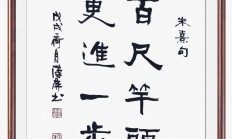 朱熹句
百尺竿頭
更進一步
戊戌荷月